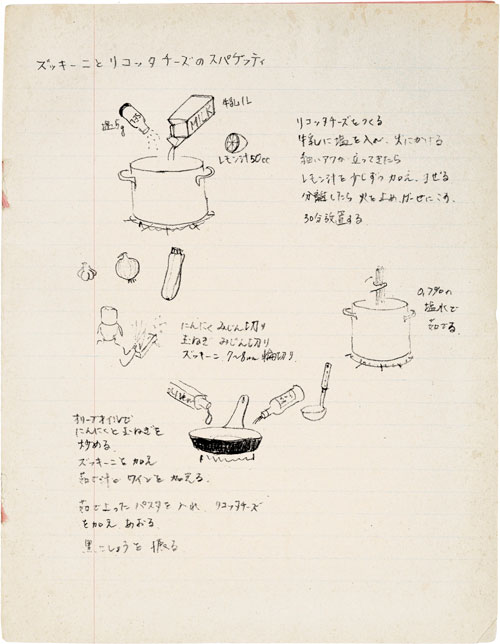 ズッキーニとリコッタチーズのスパゲッティ
塩5g
牛乳1L
MILK
レモン汁50cc
リコッタチーズをつくる
牛乳に塩を入れ、火にかける
細いアワが立ってきたら
レモン汁を少しずつ加え、まぜる
分離したら火を止め、ガーゼにこす。
30分放置する
0.7%の
塩水で
茹でる。
にんにく みじん切り
玉ねぎ みじん切り
ズッキーニ 7〜8mm 輪切り
オリーブオイルで
にんにくと玉ねぎを
炒める
ズッキーニを加え
茹で汁と ワインを加える。
茹で上ったパスタを入れ、リコッタチーズ
を加え あおる
黒こしょうを 振る